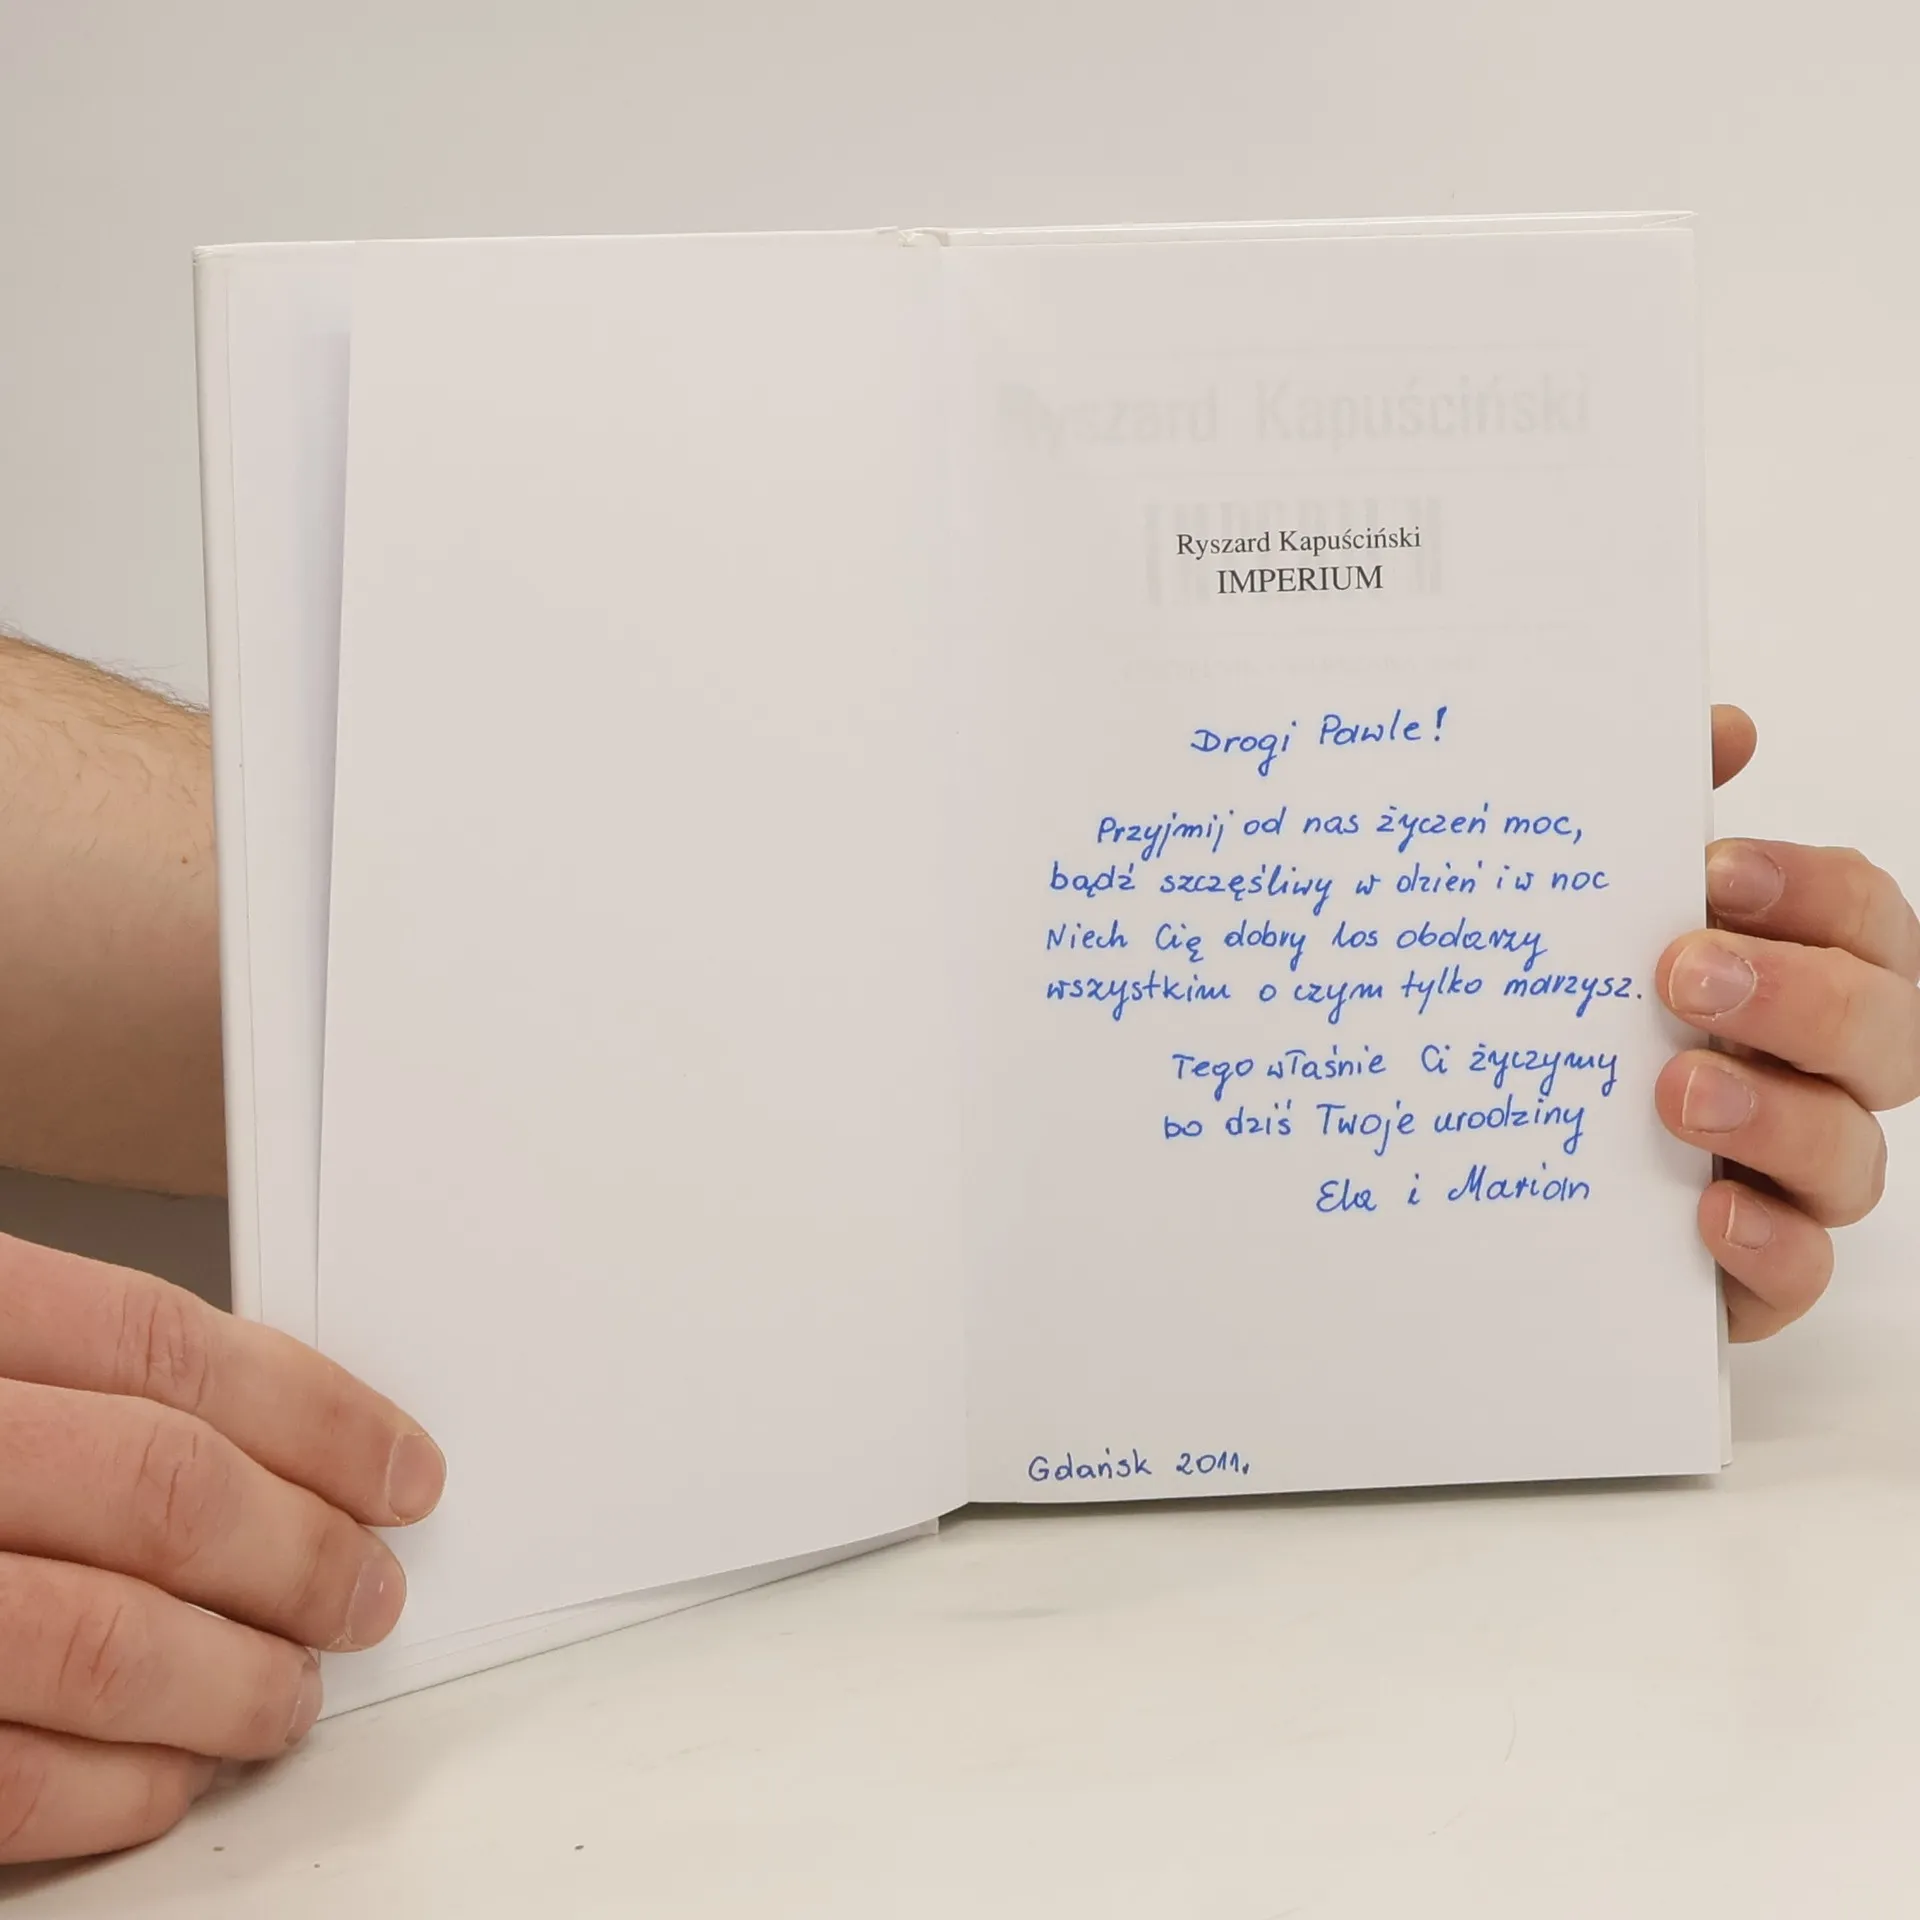 Ryszard Kapuściński
Ryszard Kapuściński
IMPERIUM
Drogi Pawle!
Przyjmij od nas życzeń moc,
bądź szczęśliwy w dzień i w noc
Niech Cię dobry los obdarzy
wszystkim o czym tylko marzysz.
Tego właśnie Ci życzymy
bo dziś Twoje urodziny
Ela i Marian
Gdańsk 2011.